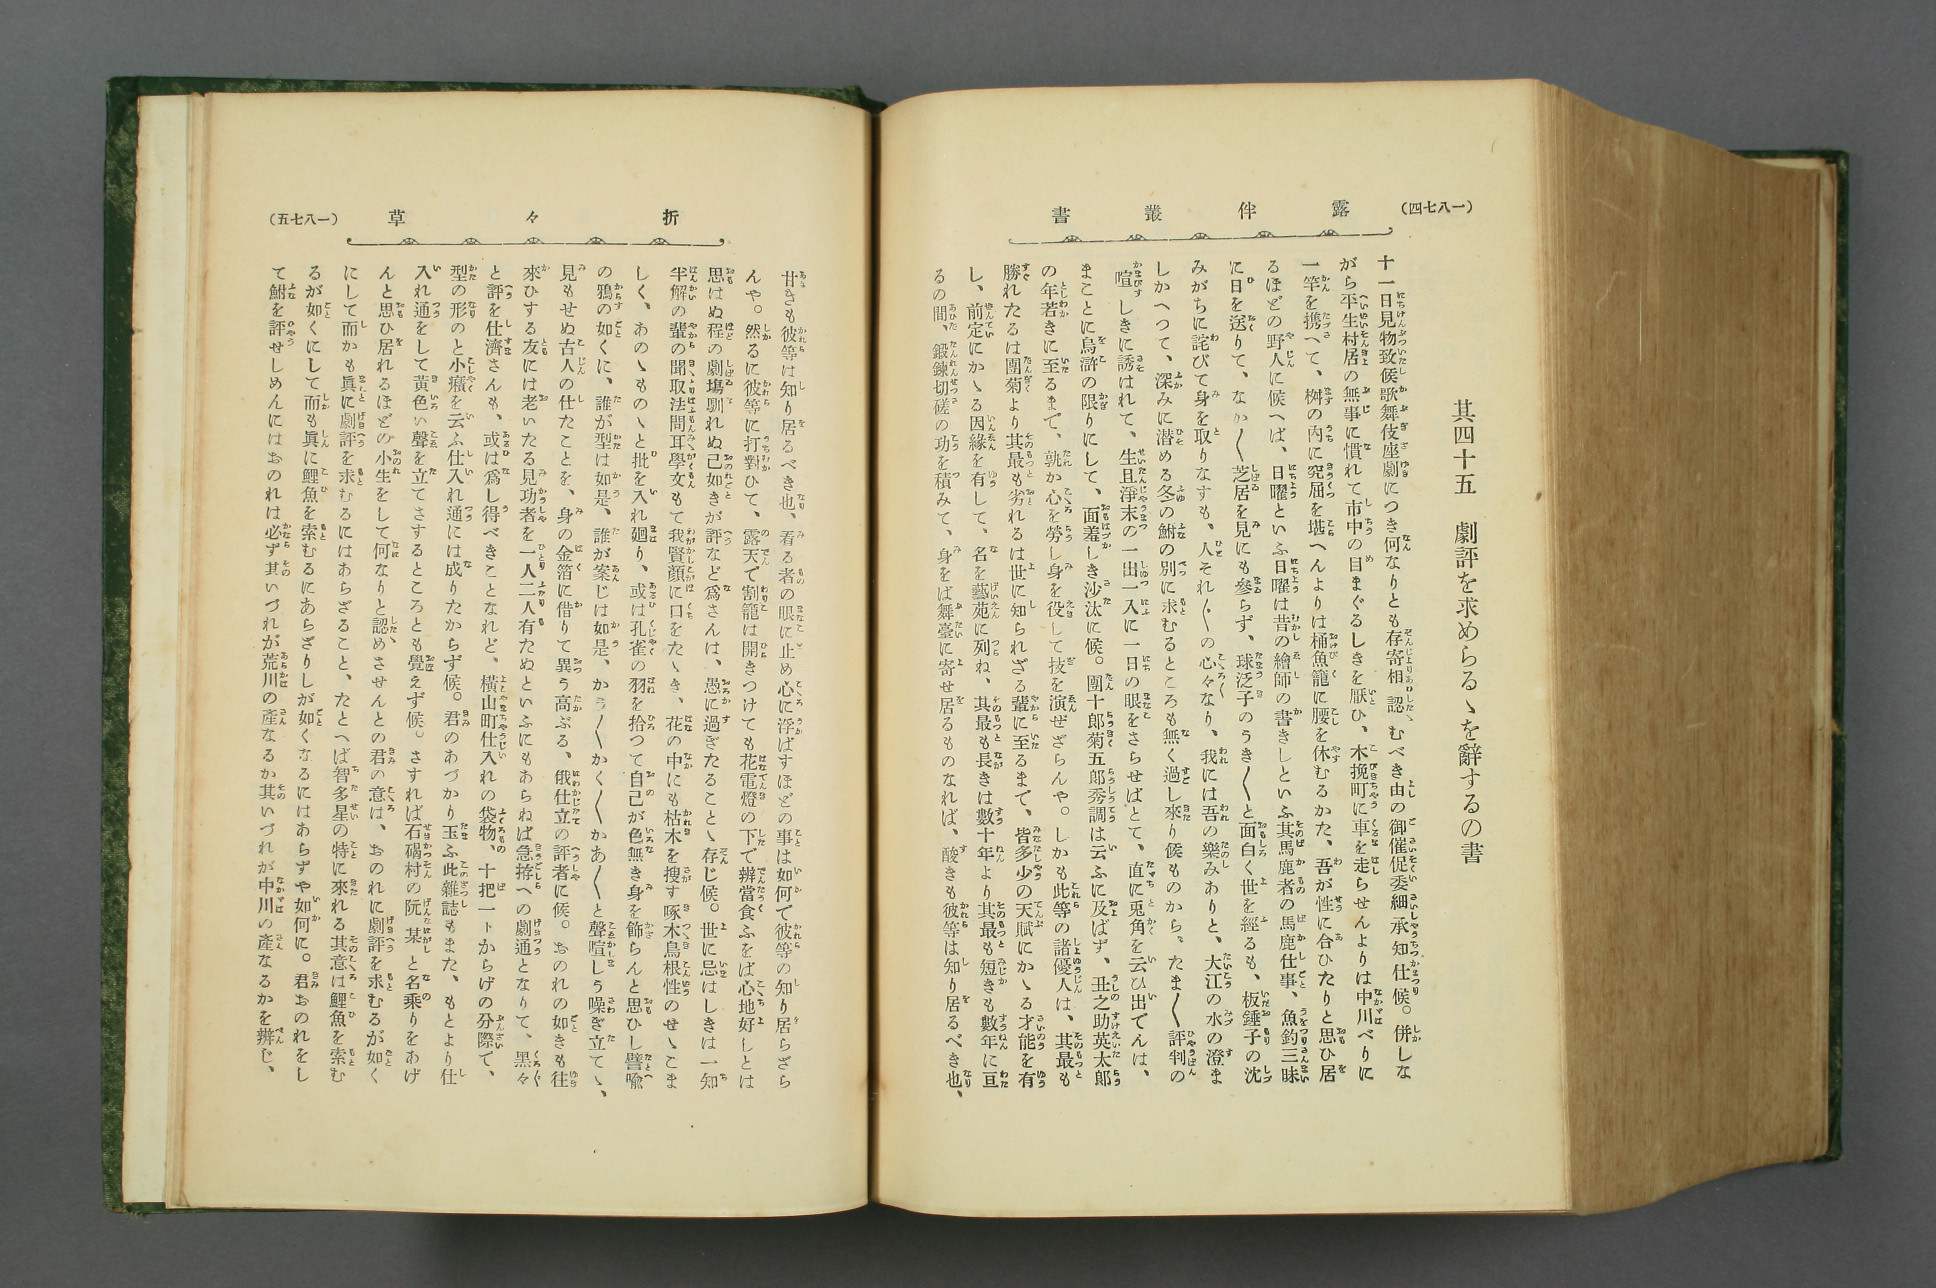 （一八七四）
露伴叢書
其四十五　劇評を求めらるゝを辭するの書
十一日見物致候歌舞伎座劇につき何なりとも存寄相認むべき由の御催促委細承知仕候。併しな
がら平生村居の無事に慣れて市中の目まぐるしきを厭ひ、木挽町に車を走らせんよりは中川べりに
一竿を携へて、桝の内に究屈を堪へんよりは桶魚籠に腰を休むるかた、吾が性に合ひたりと思ひ居
るほどの野人に候へば、日曜といふ日曜は昔の繪師の書きしといふ其馬鹿者の馬鹿仕事、魚釣三昧
に日を送りて、なか〱芝居を見にも參らず、球泛子のうき〱と面白く世を經るも、板錘子の沈
みがちに詫びて身を取りなすも、人それ〲の心々なり、我には吾の樂みありと、大江の水の澄ま
しかへつて、深みに潜める冬の鮒の別に求むるところも無く過し來り候ものから、たま〱評判の
喧しきに誘はれて、生且淨末の一出一入に一日の眼をさらせばとて、直に兎角を云ひ出でんは、
まことに烏滸の限りにして、面羞しき沙汰に候。團十郎菊五郎秀調は云ふに及ばず、丑之助英太郎
の年若きに至るまで、孰か心を勞し身を役して技を演ぜざらんや。しかも此等の諸優人は、其最も
勝れたるは團菊より其最も劣れるは世に知られざる輩に至るまで、皆多少の天賦にかゝる才能を有
し、前定にかゝる因緣を有して、名を藝苑に列ね、其最も長きは數十年より其最も短きも數年に亘
るの間、鍛鍊切磋の功を積みて、身をば舞臺に寄せ居るものなれば、酸きも彼等は知り居るべき也、
（一八七五）
折々草
甘きも彼等は知り居るべき也、看る者の眼に止め心に浮ばすほどの事は如何で彼等の知り居らざら
んや。然るに彼等に打對ひて、露天で割籠は開きつけても花電燈の下で辨當食ふをば心地好しとは
思はぬ程の劇塲馴れぬ己如きが評など爲さんは、愚に過ぎたることゝ存じ候。世に忌はしきは一知
半解の輩の聞取法問耳學文もて我賢顏に口をたゝき、花の中にも枯木を搜す啄木鳥根性のせゝこま
しく、あのゝものゝと批を入れ廻り、或は孔雀の羽を拾つて自己が色無き身を飾らんと思ひし譬喩
の鴉の如くに、誰が型は如是、誰が案じは如是、かう〱かく〱かあ〱と聲喧しう噪ぎ立てゝ、
見もせぬ古人の仕たことを、身の金箔に借りて異う高ぶる、俄仕立の評者に候。おのれの如きも往
來ひする友には老いたる見功者を一人二人有たぬといふにもあらねば急拵への劇通となりて、黑々
と評を仕濟さんも、或は爲し得べきことなれど、橫山町仕入れの袋物、十把一トからげの分際で、
型の形のと小癪を云ふ仕入れ通には成りたからず候。君のあづかり玉ふ此雜誌もまた、もとより仕
入れ通をして黃色い聲を立てさするところとも覺えず候。さすれば石碣村の阮某と名乘りをあげ
んと思ひ居れるほどの小生をして何なりと認めさせんとの君の意は、おのれに劇評を求むるが如く
にして而かも眞に劇評を求むるにはあらざること、たとへば智多星の特に來れる其意は鯉魚を索む
るが如くにして而も眞に鯉魚を索むるにあらざりしが如くなるにはあらずや如何に。君おのれをし
て鮒を評せしめんにはおのれは必ず其いづれが荒川の產なるか其いづれが中川の產なるかを辨じ、